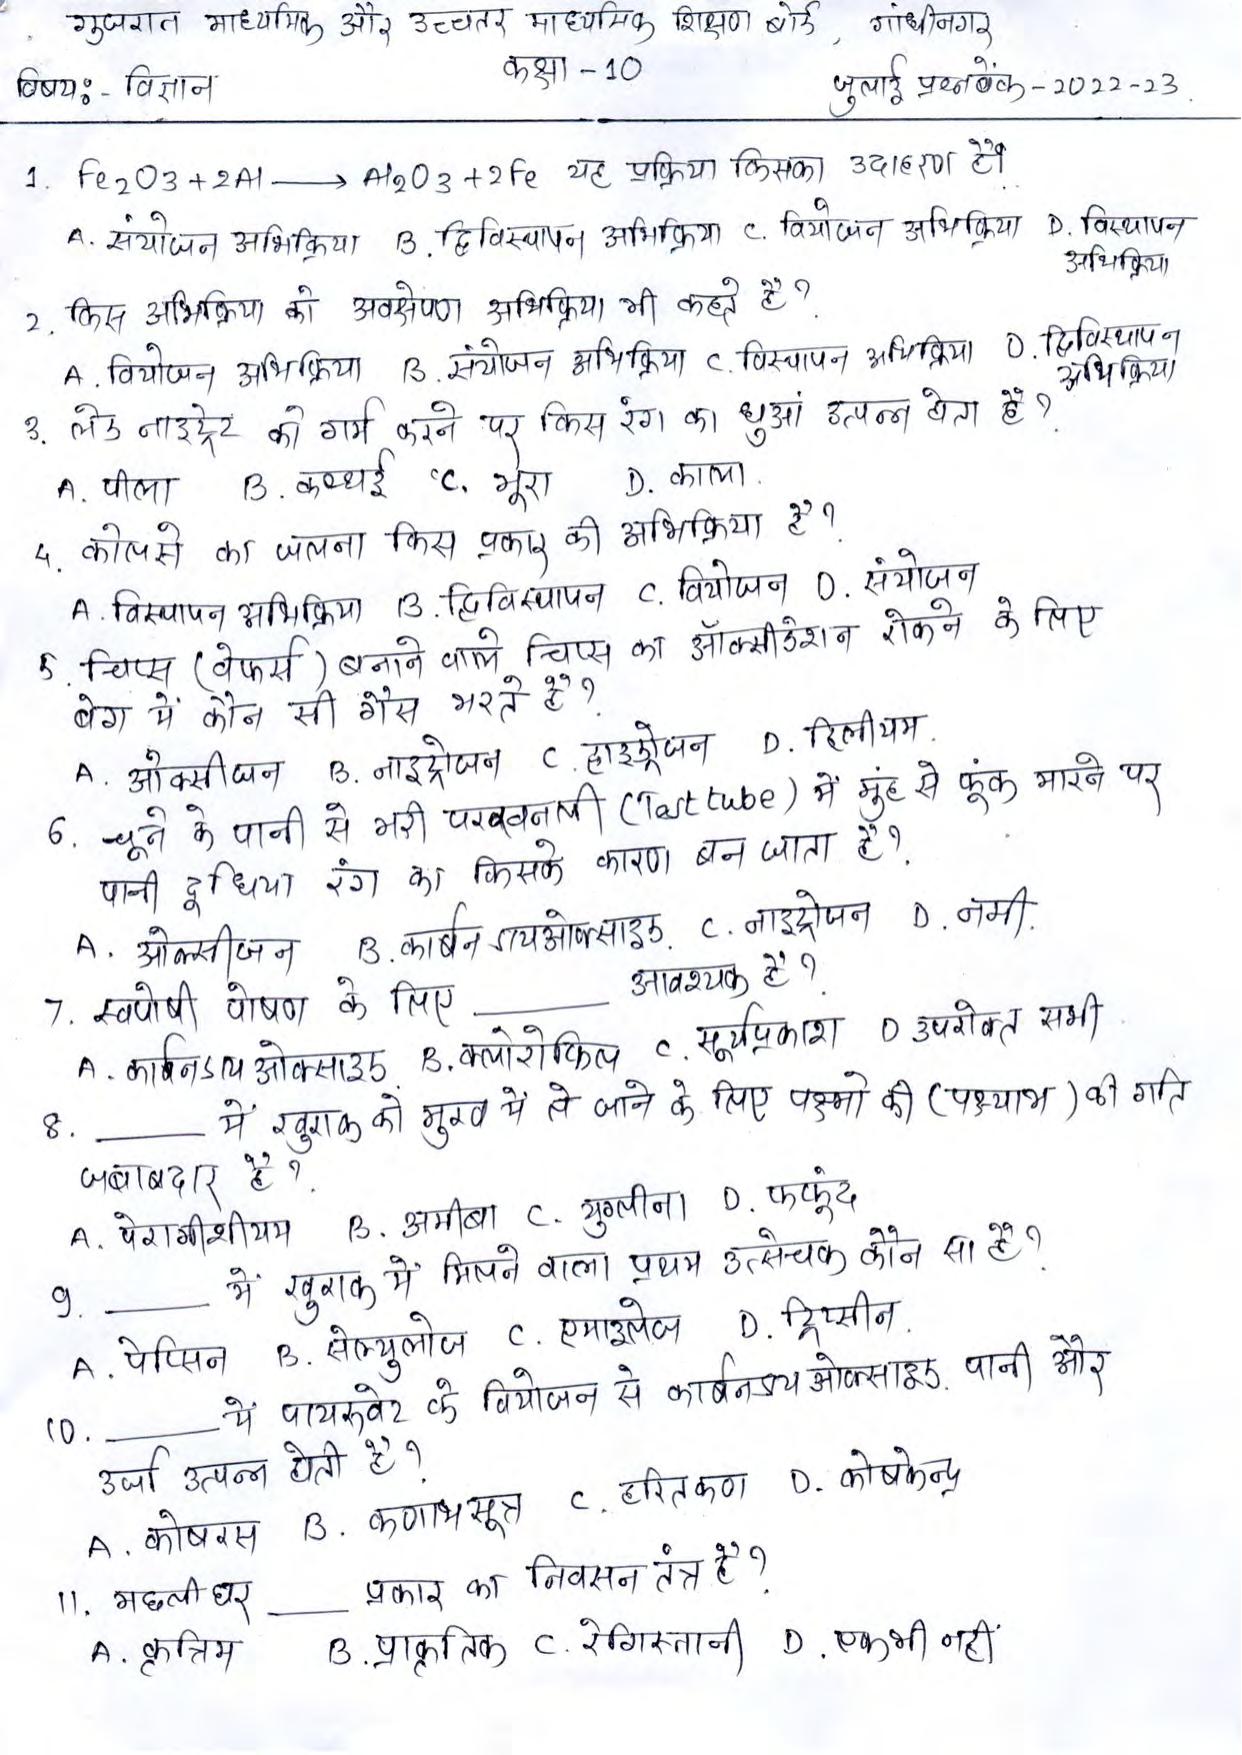 गुजरात माध्यमिक और उच्चतर माध्यमिक शिक्षण बोर्ड, गांधीनगर
कक्षा - 10
विषय:- विज्ञान
जुलाई प्रश्नबैंक - 2022-23.
1. Fe2O3 + 2Al ⟶ Al2O3 + 2Fe यह प्रक्रिया किसका उदाहरण है।
A. संयोजन अभिक्रिया B. द्विविस्थापन अभिक्रिया C. वियोजन अभिक्रिया D. विस्थापन
अभिक्रिया
2. किस अभिक्रिया को अवक्षेपण अभिक्रिया भी कहते है?
A. वियोजन अभिक्रिया B. संयोजन अभिक्रिया C. विस्थापन अभिक्रिया D. द्विविस्थापन
अभिक्रिया
3. लेड नाइट्रेट को गर्म करने पर किस रंग का धुआं उत्पन्न होता है?
A. पीला B. कथ्थई C. भूरा D. काला.
4. कोलसे का जलना किस प्रकार की अभिक्रिया है?
A. विस्थापन अभिक्रिया B. द्विविस्थापन C. वियोजन D. संयोजन
5. चिप्स (वेफर्स) बनाने वाले चिप्स का ऑक्सीडेशन रोकने के लिए
बेग में कौन सी गैस भरते है?
A. ओक्सीजन B. नाइट्रोजन C. हाइड्रोजन D. हिलीयम.
6. चूने के पानी से भरी परखनली (Test tube) में मुंह से फूंक मारने पर
पानी दूधिया रंग का किसके कारण बन जाता है?
A. ओक्सीजन B. कार्बन डायओक्साइड. C. नाइट्रोजन D. नमी.
7. स्वपोषी पोषण के लिए ______ आवश्यक है?
A. कार्बनडाय ओक्साइड B. क्लोरोफिल C. सूर्यप्रकाश D उपरोक्त सभी
8. ______ में खुराक को मुख में ले जाने के लिए पक्ष्मो की (पक्ष्याभ) की गति
जबाबदार है?
A. पेरामीशीयम B. अमीबा C. युग्लीना D. फफूंद
9. ______ में खुराक में मिलने वाला प्रथम उत्सेचक कौन सा है?
A. पेप्सिन B. सेल्युलोज C. एमाइलेज D. ट्रिप्सीन.
10. ______ में पायरूवेट के वियोजन से कार्बनडाय ओक्साइड, पानी और
उर्जा उत्पन्न होती है?
A. कोषरस B. कणाभसूत्र C. हरितकण D. कोषकेन्द्र
11. मछलीघर ____ प्रकार का निवसन तंत्र है?
A. कृत्रिम B. प्राकृतिक C. रेगिस्तानी D. एकभी नहीं